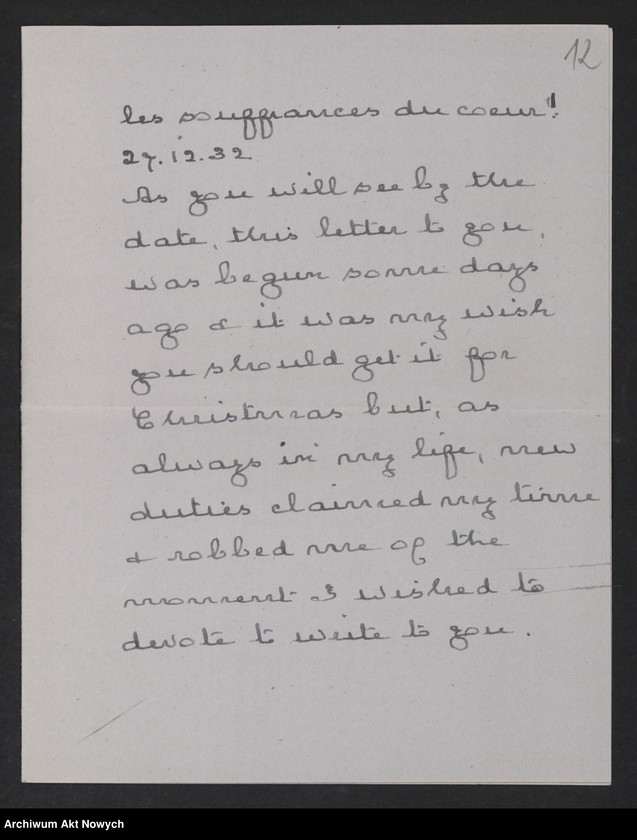 12
les souffrances du coeur!
27.12.32
As you will see by the
date, this letter to you,
was begun some days
ago & it was my wish
you should get it for
Christmas but, as
always in my life, new
duties claimed my time
& robbed me of the
moment I wished to
devote to write to you.
Archiwum Akt Nowych